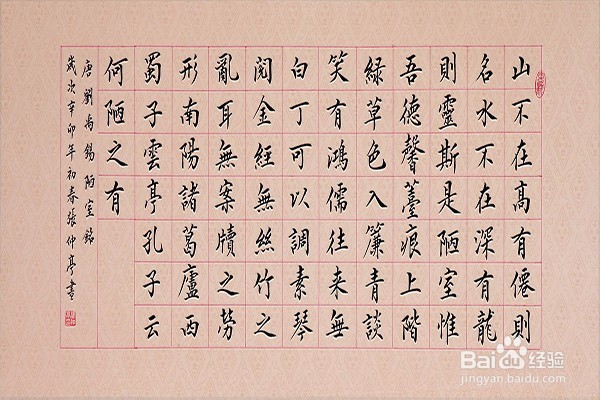 山不在高有僊則
名水不在深有龍
則靈斯是陋室惟
吾德馨薹痕上階
緑草色入簾青談
笑有鴻儒往来無
白丁可以調素琴
閱金經無絲竹之
亂耳無案牘之勞
形南陽諸葛廬西
蜀子雲亭孔子云
何陋之有
唐劉禹錫陋室銘
歲次辛卯年初春張仲亭書
Baidu 经验
jingyan.baidu.com